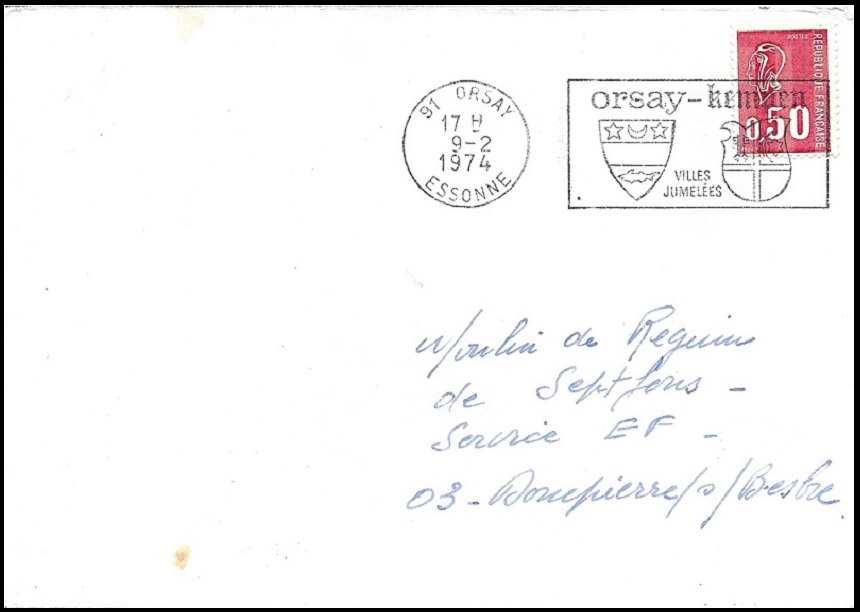 POSTES
REPUBLIQUE FRANCAISE
0,50
91 ORSAY
17 H
9-2
1974
ESSONNE
orsay-kempen
VILLES
JUMELÉES
Moulin de Reguin
de Septfons -
Service EF -
03 - Dompierre/s/Besbre